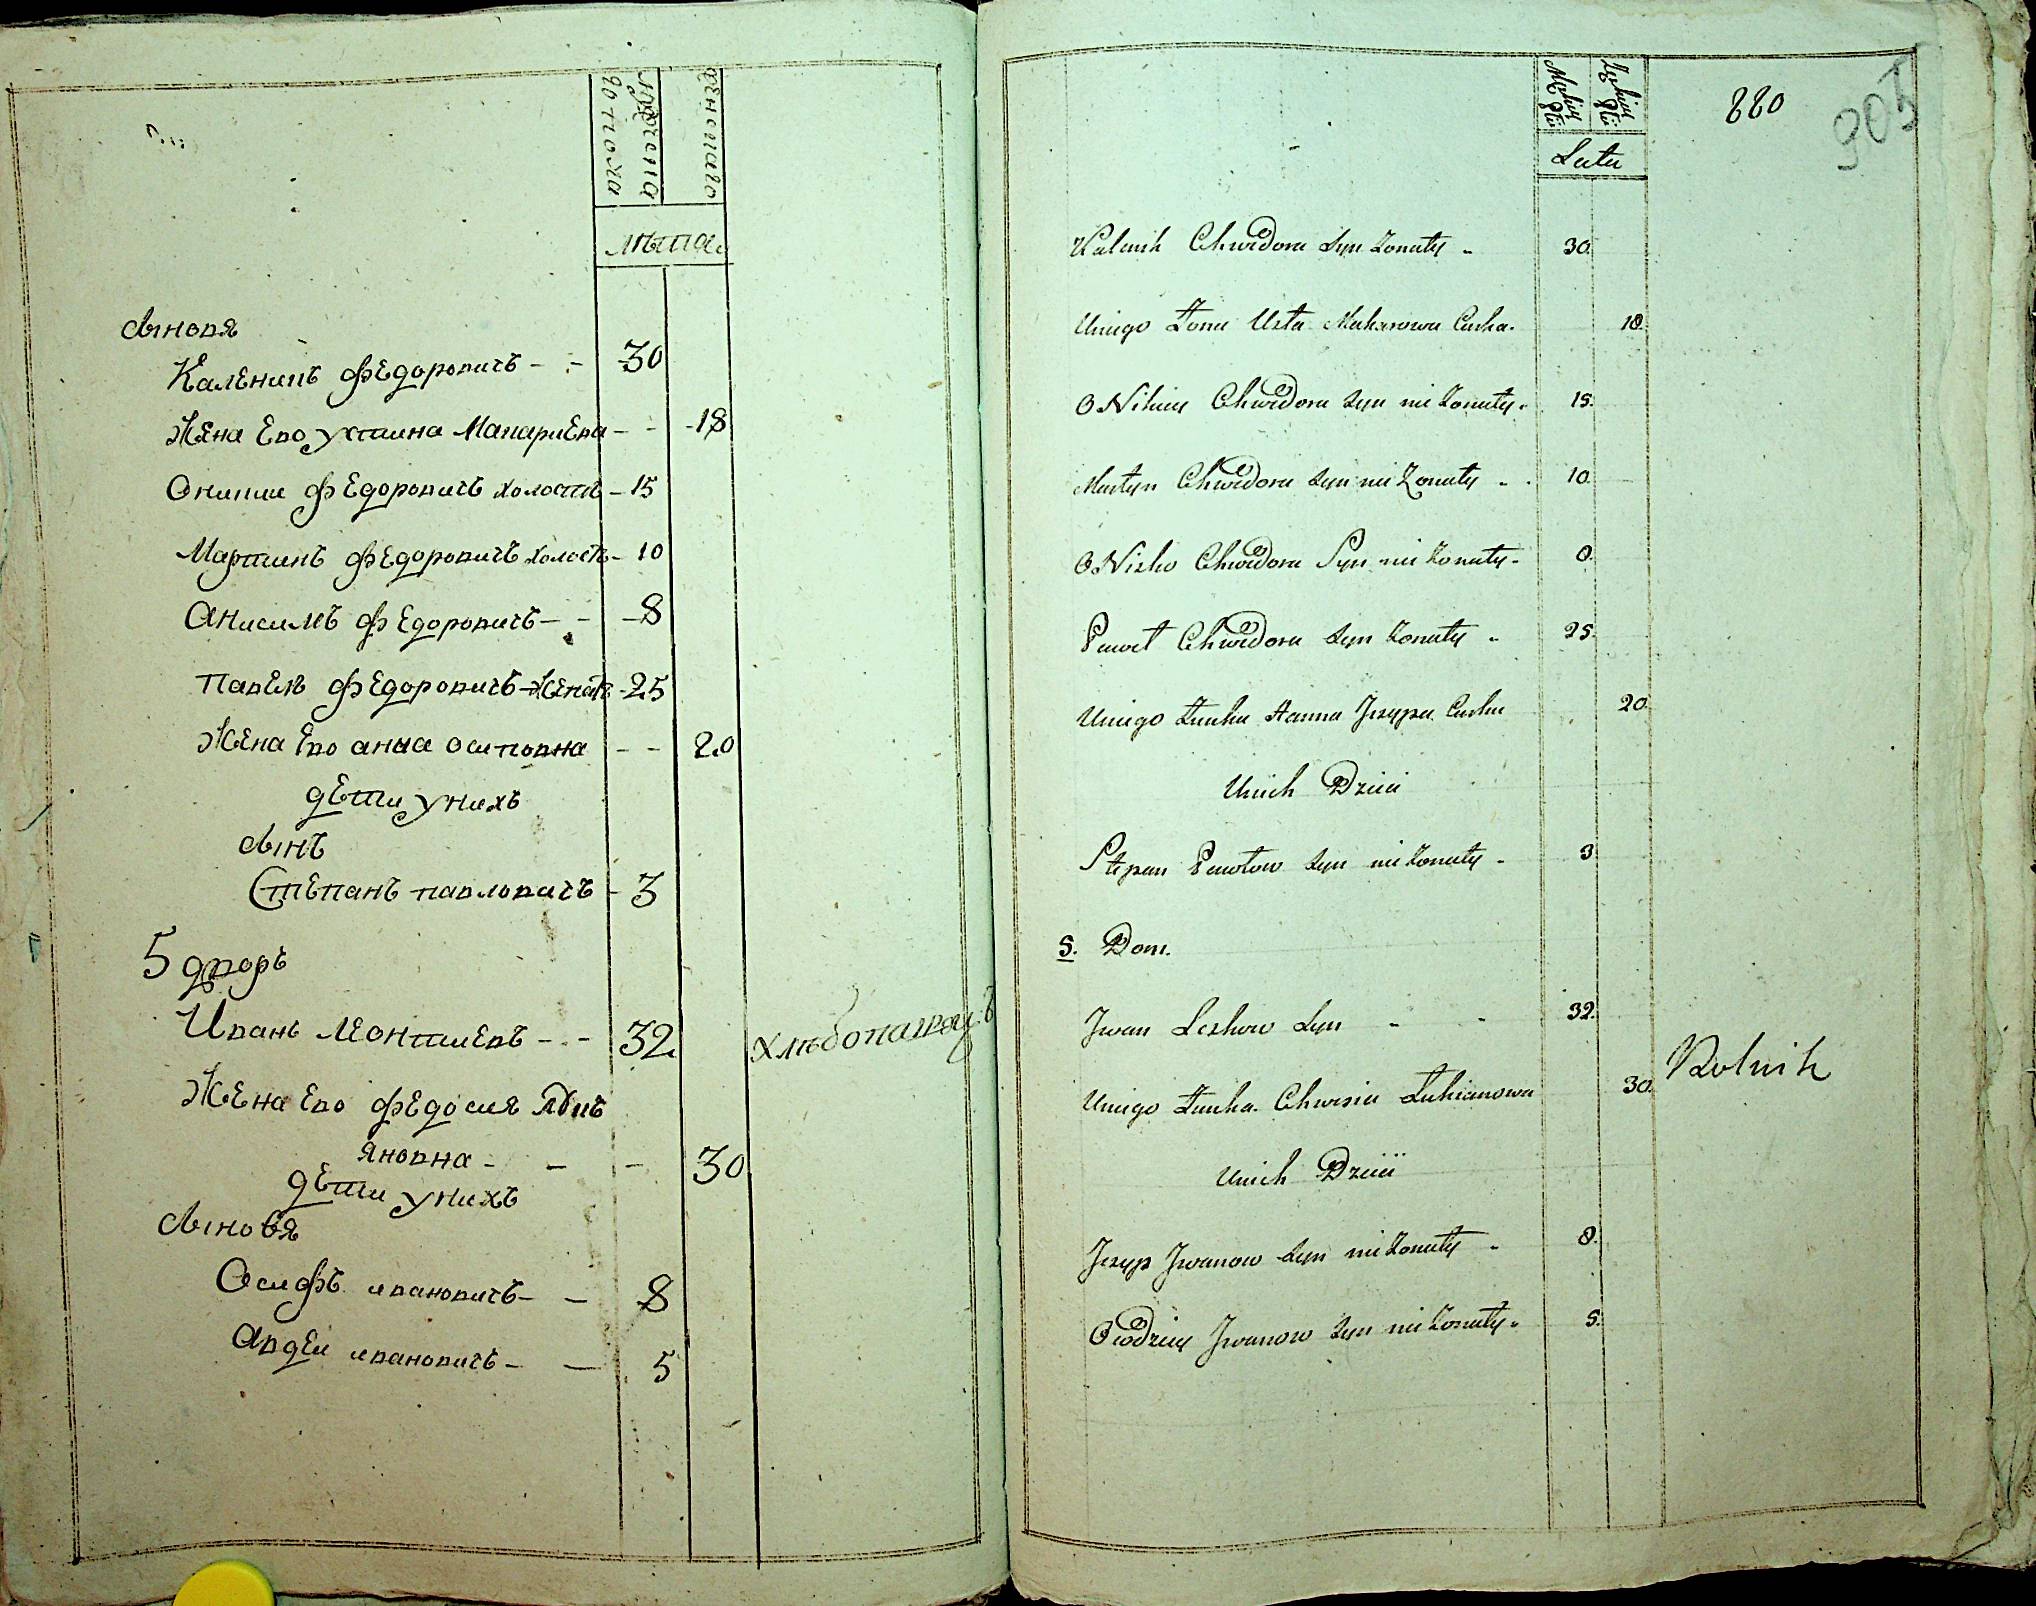 мужеска
до пола
женскаго
лѣта
сыновя
Каленикъ федоровичъ - - 30
Жена Ево Ухтинна Макариева - - 18
Оникии федоровичъ холостъ - 15
Мартинъ федоровичъ холостъ - 10
Анисимъ федоровичъ - - 8
павелъ федоровичъ женатъ - 25
Жена Ево анна осиповна - - 20
дѣти у нихъ
сынъ
Степанъ павловичъ - 3
5 дворъ
Иванъ Леонтиевъ - - 32
хлѣбопашецъ
Жена Ево федосия
яновна - - - 30
дѣти у нихъ
сыновя
Осифъ ивановичъ - - 8
Авдеи ивановичъ - - 5
880
905
Latu
Kalinik Chwedora Syn Żonaty - 30.
Uniego Żona Usta Makarowa Curka. 18.
O Nikiey Chwedora Syn nie Żonaty. 15.
Martyn Chwedora Syn nie Żonaty - . 10.
O Nisko Chwedora Syn nie Żonaty - 8.
Paweł Chwedora Syn Żonaty - 25.
Uniego Żonka Hanna Jozypa Curka 20.
Unich Dzieci
Stepan Pawłow Syn nie Żonaty - 3
5. Dom.
Jwan Leskow Syn - - 32.
Rolnik
Uniego Żonka Chwesia Łukianowa 30.
Unich Dzieci
Jozyp Jwanow Syn nie Żonaty - 8.
Owdziey Jwanow Syn nie Żonaty - 5.